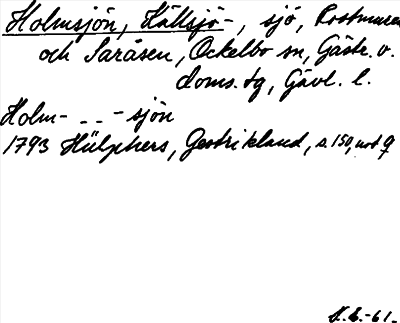 Holmsjön, Källsjö-, sjö, Rostmuren
och Saråsen, Ockelbo sn, Gästr. v.
doms. tg, Gävl. l.
Holm- - - -sjön
1793 Hülphers, Gestrikland, s. 150, not 9
-61.